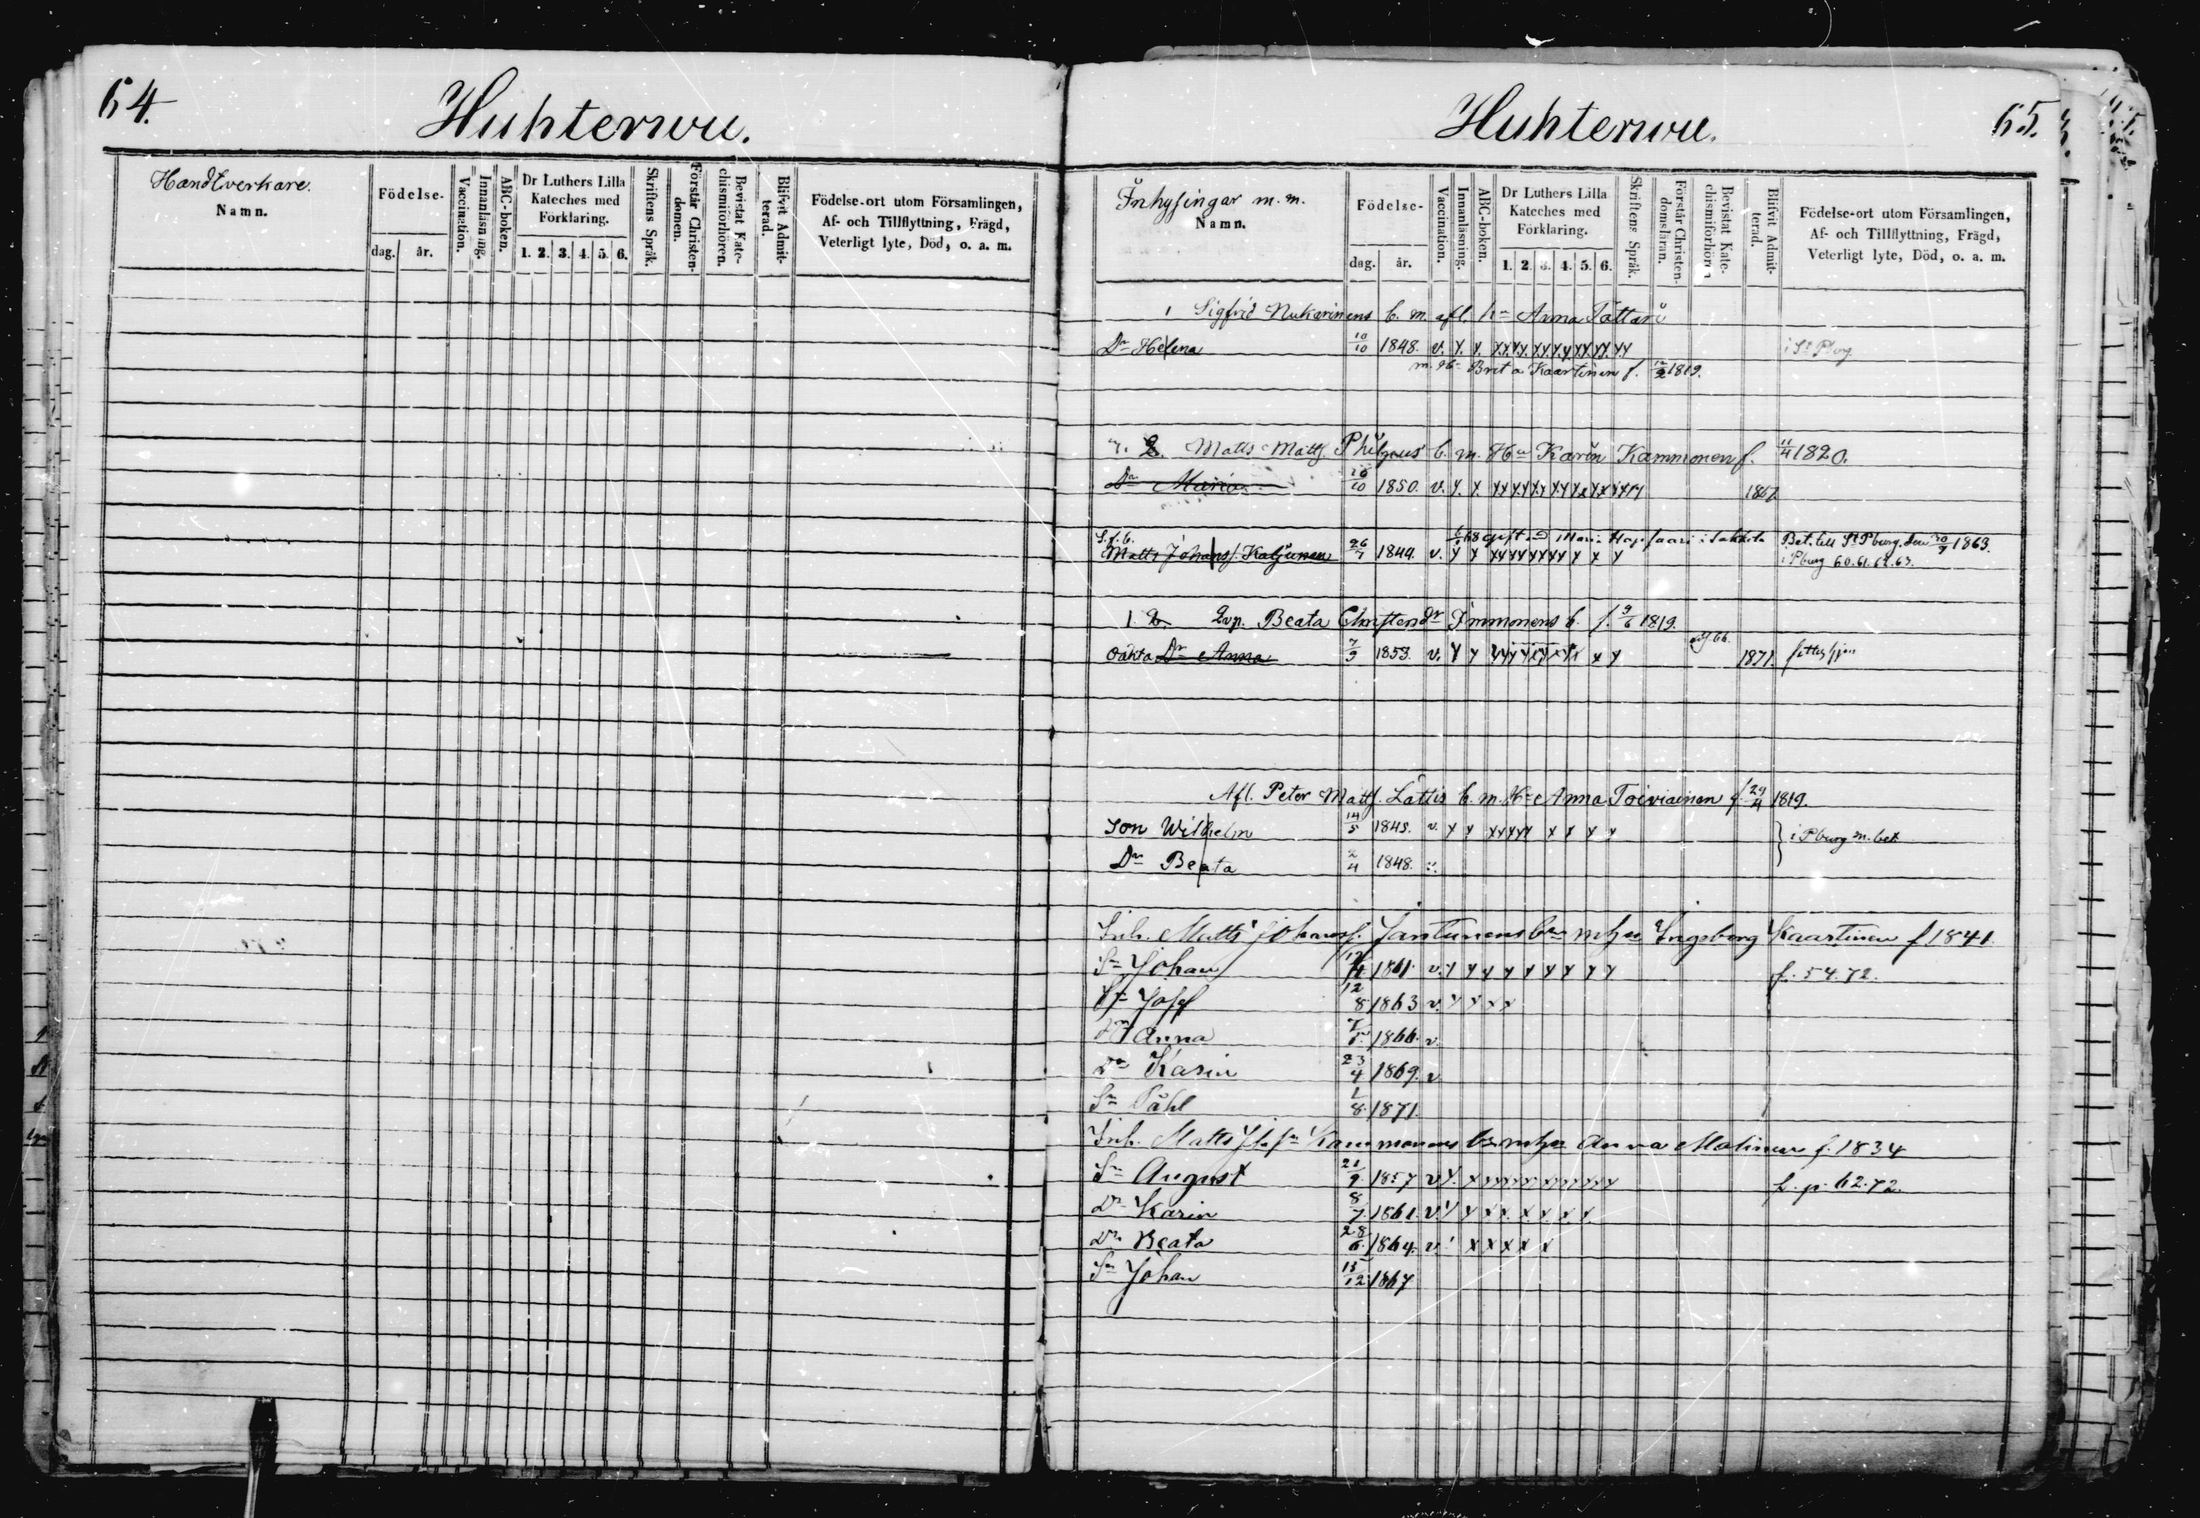 64.
Huhterwu.
Handtverkare.
Namn.
Födelse-
dag. år.
Vaccination.
Innanläsning.
ABC-boken.
Dr Luthers Lilla
Kateches med
Förklaring.
1. 2. 3. 4. 5. 6.
Skriftens Språk.
Förstår Christen-
domen.
Bevistat Kate-
chismiförhören.
Blifvit Admit-
terad.
Födelse-ort utom Församlingen,
Af- och Tillflyttning, Frägd,
Veterligt lyte, Död, o. a. m.
Huhterwu.
65.
Inhysingar m. m.
Namn.
Födelse-
dag. år.
Vaccination.
Innanläsning.
ABC-boken.
Dr Luthers Lilla
Kateches med
Förklaring.
1. 2. 3. 4. 5. 6.
Skriftens Språk.
Förstår Christen-
domsläran.
Bevistat Kate-
chismiförhören
Blifvit Admit-
terad.
Födelse-ort utom Församlingen,
Af- och Tillflyttning, Frägd,
Veterligt lyte, Död, o. a. m.
1 Sigfrid Nukarinens b. m. afl. h Anna Tattari
Dr Helena 10/10 1848. v. i St Pburg
Brita Kaartinen f. 12/2 1819.
2. Matts Matts. b. m. Hu Karin Kammonen f. 11/4 1820.
Dr Maria 26/10 1850. v. 1867
S.f.b.
Matts Johanss. Katjunen 26/7 1844. v. Bet. till St Pburg den 30/7 1863.
i Pburg 60. 61. 62. 63.
1. Beata Christersdr Immonens b. f. 9/6 1819.
oäkta Dr Anna 7/9 1853. v. 1871.
Afl. Peter Matts. Lättis b. m. H Anna Toiviainen f. 29/4 1819.
Son Wilhelm 14/5 1845. v. i Pburg m. bet
Dr Beata 2/4 1848. v.
Inh. Matts Johanss. Jantunens b. m. h. Ingeborg Kaartinen f 1841.
Sn Johan 1861. v. f. 54. 72.
Sn Josef 12/8 1863 v.
Dr Anna 1866. v.
Dr Karin 23/4 1869. v
Sn Påhl 1/8 1871.
Inh. Matts Kammonens b. m. h. Anna Molinen f. 1834
Sn August 21/9 1857 v f. p. 62. 72.
Dr Karin 8/7 1861. v.
Dr Beata 28/6 1864. v.
Sn Johan 13/12 1867